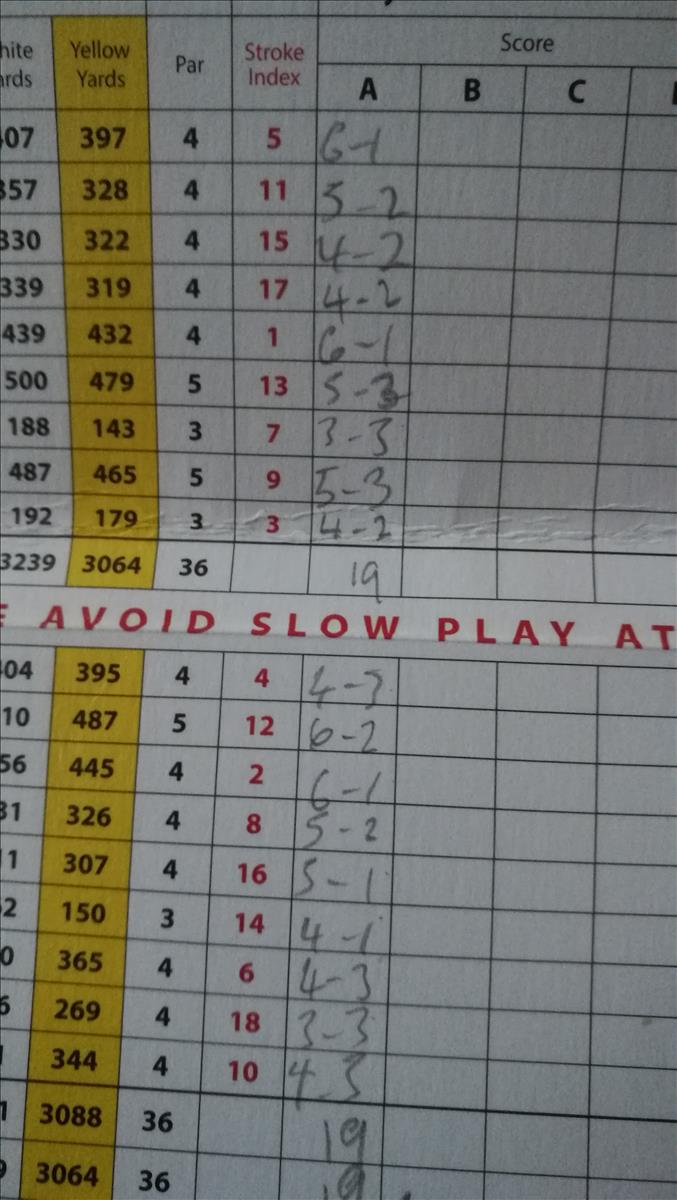 Score
hite Yellow Par Stroke
ards Yards Index A B C
407 397 4 5 6-1
357 328 4 11 5-2
330 322 4 15 4-2
339 319 4 17 4-2
439 432 4 1 6-1
500 479 5 13 5-3
188 143 3 7 3-3
487 465 5 9 5-3
192 179 3 3 4-2
3239 3064 36 19
E AVOID SLOW PLAY AT
404 395 4 4 4-3
10 487 5 12 6-2
56 445 4 2 6-1
31 326 4 8 5-2
11 307 4 16 5-1
52 150 3 14 4-1
0 365 4 6 4-3
6 269 4 18 3-3
344 4 10 4-3
1 3088 36 19
9 3064 36 19